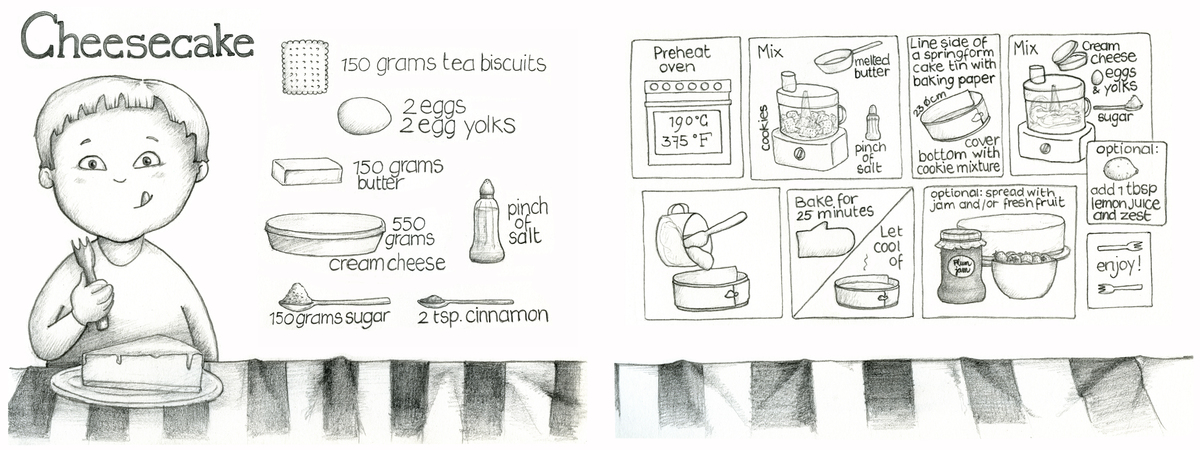 Cheesecake
150 grams tea biscuits
2 eggs
2 egg yolks
150 grams
butter
550
grams
cream cheese
pinch
of
salt
150 grams sugar
2 tsp. cinnamon
Preheat
oven
190°C
375 °F
Mix
melted
butter
cookies
pinch
of
salt
Line side of
a springform
cake tin with
baking paper
23 ø cm
cover
bottom with
cookie mixture
Mix
Cream
cheese
eggs
& yolks
sugar
optional:
add 1 tbsp
lemon juice
and zest
Bake for
25 minutes
Let
cool
of
optional: spread with
jam and/or fresh fruit
Plum
jam
enjoy!